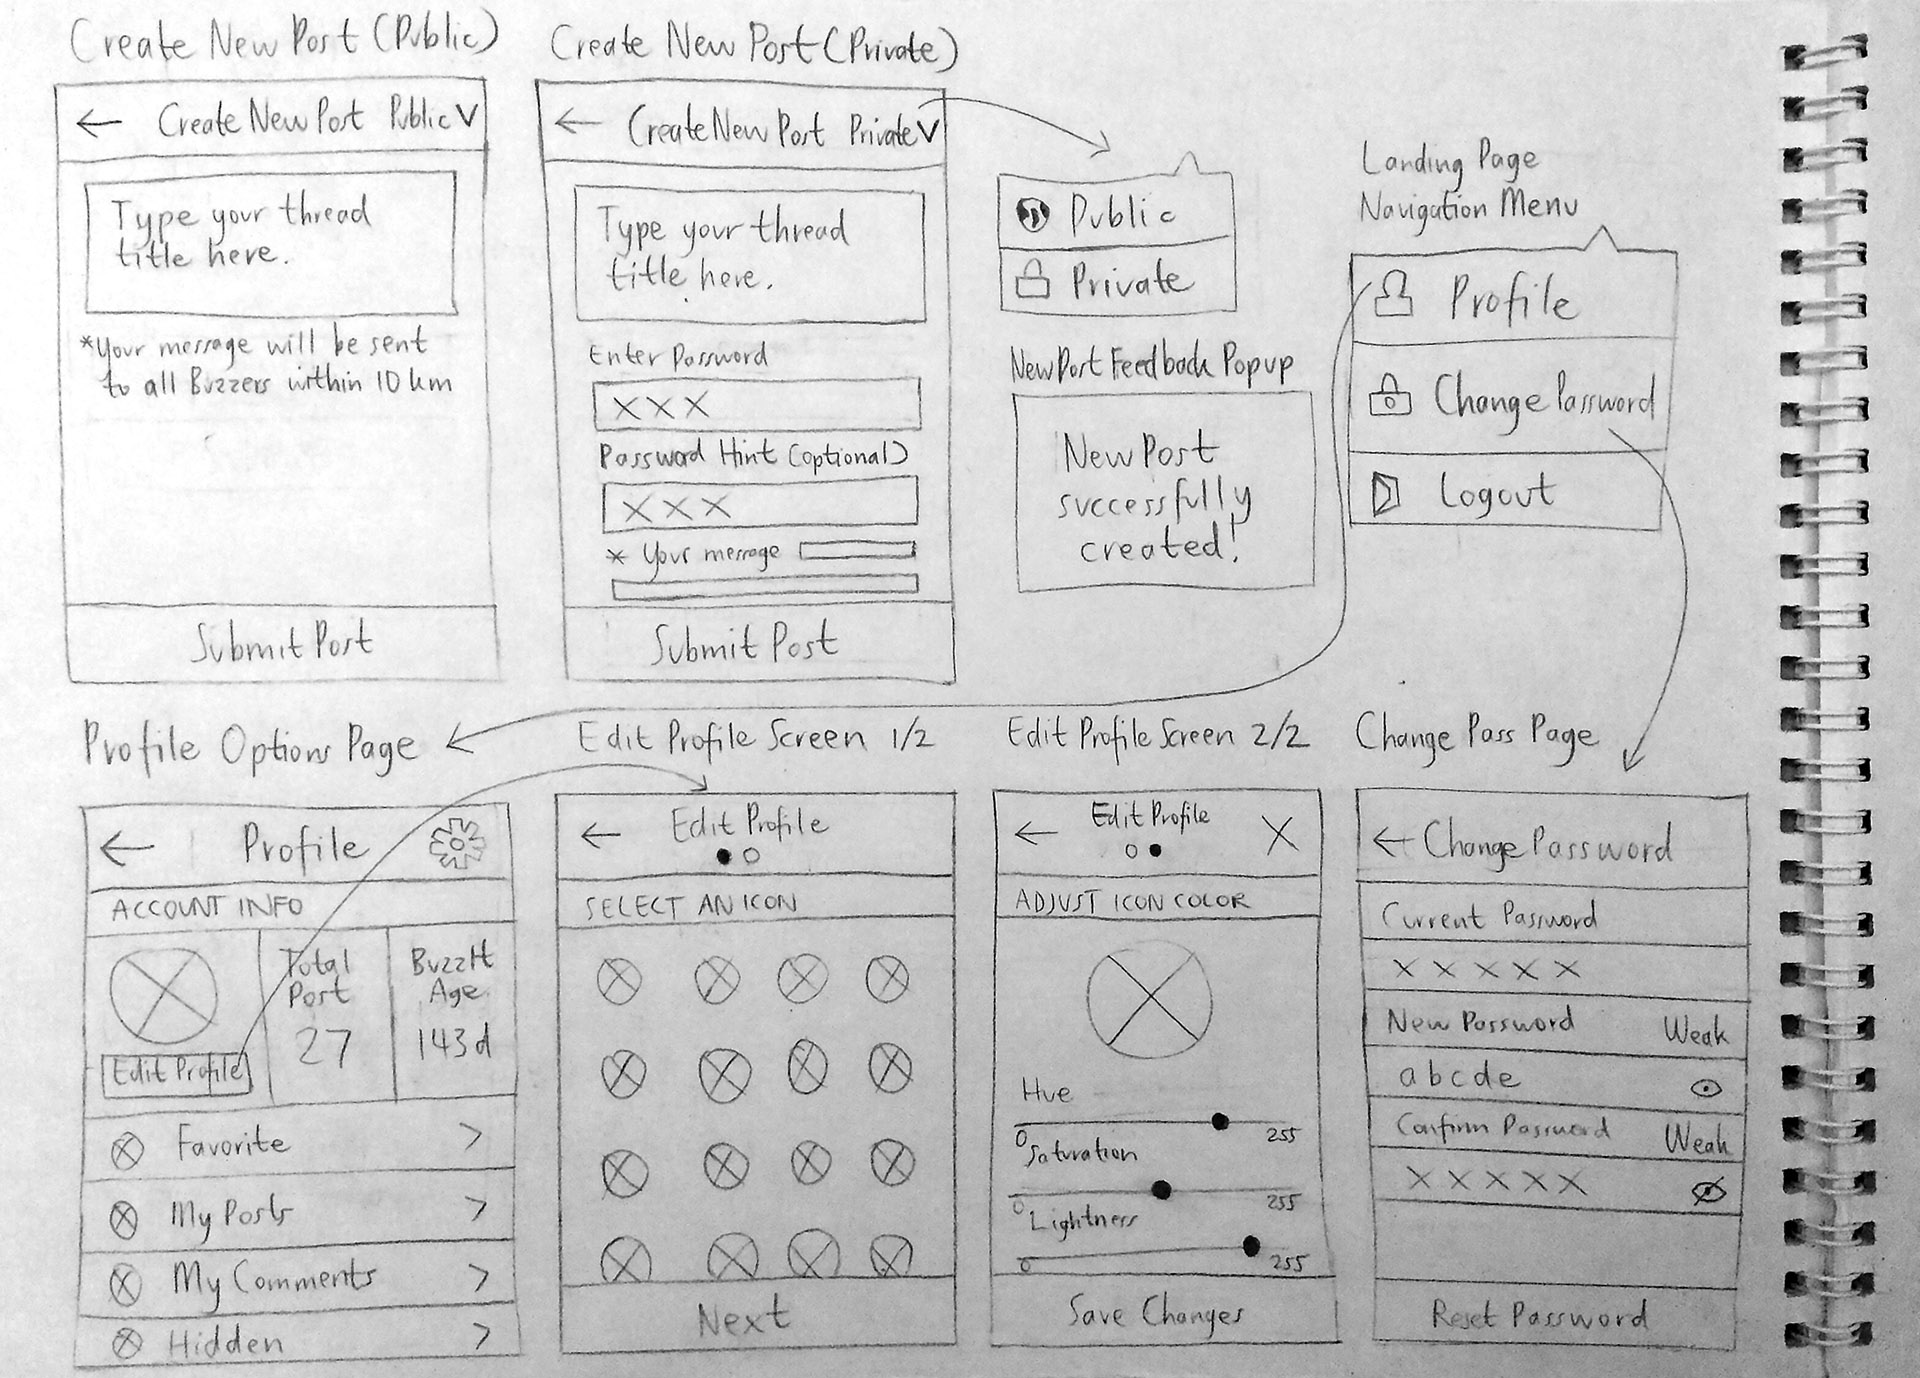 Create New Post (Public)
← Create New Post Public V
Type your thread
title here.
*Your message will be sent
to all Buzzers within 10 km
Submit Post
Create New Post (Private)
← Create New Post Private V
Type your thread
title here.
Enter Password
XXX
Password Hint (optional)
XXX
* Your message
Submit Post
Public
Private
New Post Feedback Popup
New Post
successfully
created!
Landing Page
Navigation Menu
Profile
Change Password
Logout
Profile Options Page
← Profile
ACCOUNT INFO
Edit Profile
Total
Post
27
BuzzIt
Age
143d
Favorite >
My Posts >
My Comments >
Hidden >
Edit Profile Screen 1/2
← Edit Profile
SELECT AN ICON
Next
Edit Profile Screen 2/2
← Edit Profile X
ADJUST ICON COLOR
Hue
0 255
Saturation
0 255
Lightness
0 255
Save Changes
Change Pass Page
← Change Password
Current Password
X X X X X
New Password Weak
abcde
Confirm Password Weak
X X X X X
Reset Password